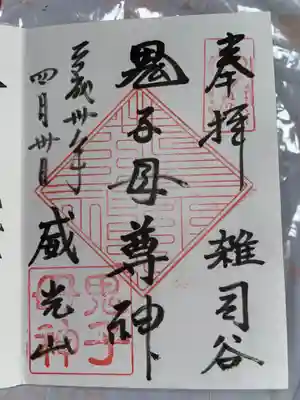 奉拝 雑司谷
鬼子母尊神
平成卅一年
四月卅日 威光山
鬼子
母神